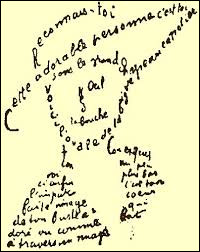 Reconnais-toi
Cette adorable personne c'est toi
sous le grand chapeau canotier
Œil
la bouche
Voici l'ovale de ta figure
Ton cou exquis
voi
ci enfin
l'impar
faite image
de ton buste
adoré vu comme
à travers un nuage
un peu
plus bas
c'est ton
coeur
qui
bat